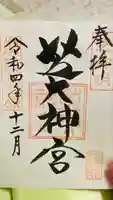 奉拝
芝大神宮
令和四年十二月